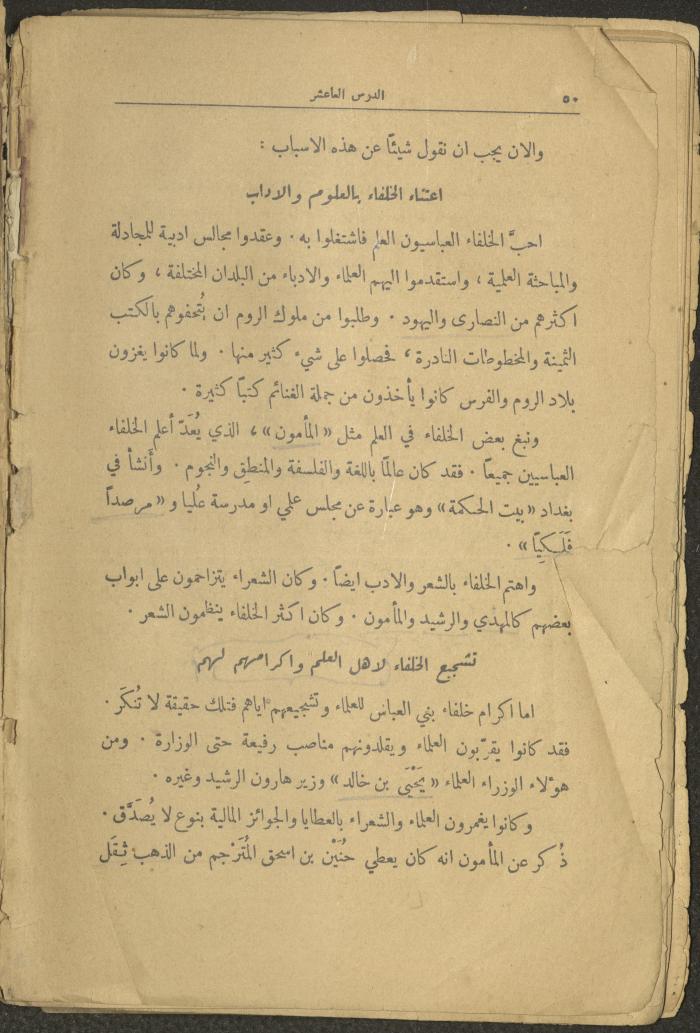 ٥٠
الدرس العاشر
والان يجب ان نقول شيئًا عن هذه الاسباب :
اعتناء الخلفاء بالعلوم والاداب
احبَّ الخلفاء العباسيون العلم فاشتغلوا به . وعقدوا مجالس ادبية للمجادلة
والمباحثة العلمية ، واستقدموا اليهم العلماء والادباء من البلدان المختلفة ، وكان
اكثرهم من النصارى واليهود . وطلبوا من ملوك الروم ان يُتحفوهم بالكتب
الثمينة والمخطوطات النادرة ، فحصلوا على شيء كثير منها . ولما كانوا يغزون
بلاد الروم والفرس كانوا يأخذون من جملة الغنائم كتبًا كثيرة .
ونبغ بعض الخلفاء في العلم مثل « المأمون » ، الذي يُعَدّ أعلم الخلفاء
العباسيين جميعًا . فقد كان عالمًا باللغة والفلسفة والمنطِق والنجوم . وأَنشأ في
بغداد « بيت الحكمة » وهو عبارة عن مجلس علمي او مدرسة عُليا و « مرصداً
فَلَكيًّا » .
واهتم الخلفاء بالشعر والادب ايضاً . وكان الشعراء يتزاحمون على ابواب
بعضهم كالمهدي والرشيد والمأمون . وكان اكثر الخلفاء ينظمون الشعر .
تشجيع الخلفاء لاهل العلم واكرامهم لهم
اما اكرام خلفاء بني العباس للعلماء وتشجيعهم اياهم فتلك حقيقة لا تُنكَر .
فقد كانوا يقرّبون العلماء ويقلدونهم مناصب رفيعة حتى الوزارة . ومن
هؤلاء الوزراء العلماء « يَحْيَى بن خالد » وزير هارون الرشيد وغيره .
وكانوا يغمرون العلماء والشعراء بالعطايا والجوائز المالية بنوع لا يُصدَّق .
ذُكر عن المأمون انه كان يعطي حُنَيْن بن اسحق المُتَرْجم من الذهب ثِقَل